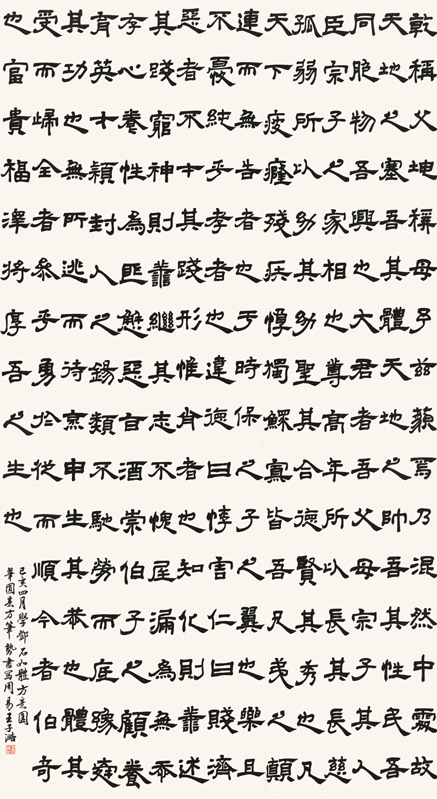 乾稱父坤稱母予茲藐焉乃混然中處故
天地之塞吾其體天地之帥吾其性民吾
同胞物吾與也大君者吾父母宗子其大
臣宗子之家相也尊高年所以長其長慈
孤弱所以幼其幼聖其合德賢其秀也凡
天下疲癃殘疾惸獨鰥寡皆吾兄弟之顛
連而無告者也于時保之子之翼也樂且
不憂純乎孝者也違德曰悖害仁曰賊濟
惡者不才其踐形惟肖者也知化則善述
其踐窮神則善繼其志不愧屋漏為無忝
存心養性為匪懈惡旨酒崇伯子之顧養
育英才穎封人之錫類不馳勞而底豫舜
其功也無所逃而待烹申生其恭也體其
受而歸全者參乎勇於從而順令者伯奇
也富貴福澤將厚吾之生也
己亥四月學鄧石如體方意圓
筆圓意方筆勢書寫周易王子